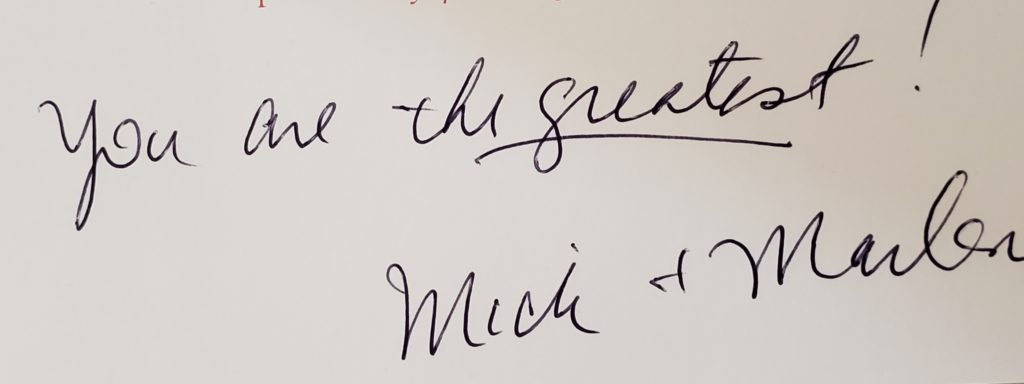 You are the greatest!
Mick + Marlen